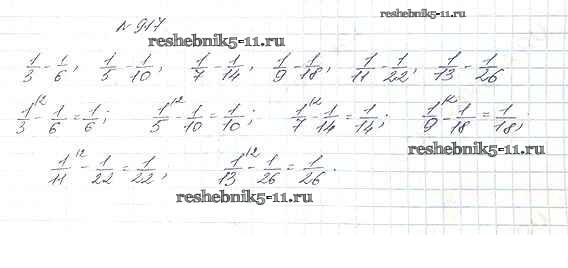 reshebnik5-11.ru
№ 917
reshebnik5-11.ru
1/3 - 1/6, 1/5 - 1/10, 1/7 - 1/14, 1/9 - 1/18, 1/11 - 1/22, 1/13 - 1/26
1/3^\2 - 1/6 = 1/6; 1/5^\2 - 1/10 = 1/10; 1/7^\2 - 1/14 = 1/14; 1/9^\2 - 1/18 = 1/18;
reshebnik5-11.ru
1/11^\2 - 1/22 = 1/22; 1/13^\2 - 1/26 = 1/26.
reshebnik5-11.ru